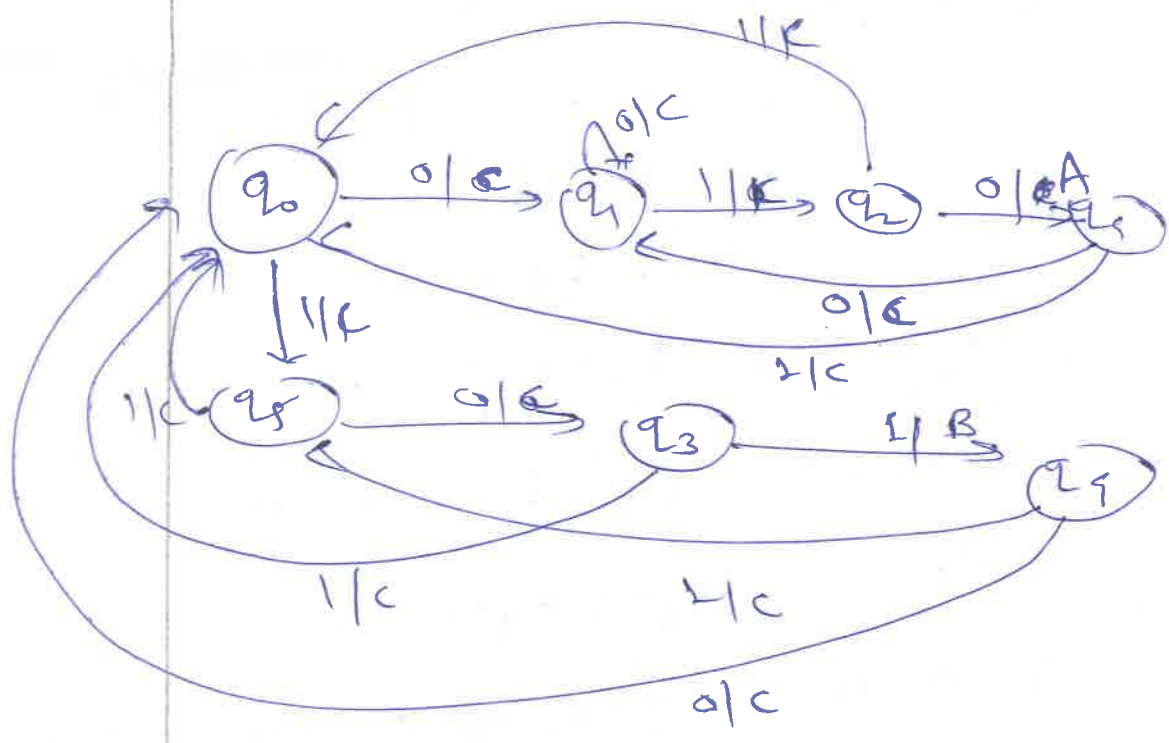 1/C
0/C
q0 0/C q1 1/C q2 0/A q4
0/C
1/C
1/C
1/C q5 0/C q3 1/B q4
1/C 1/C
0/C